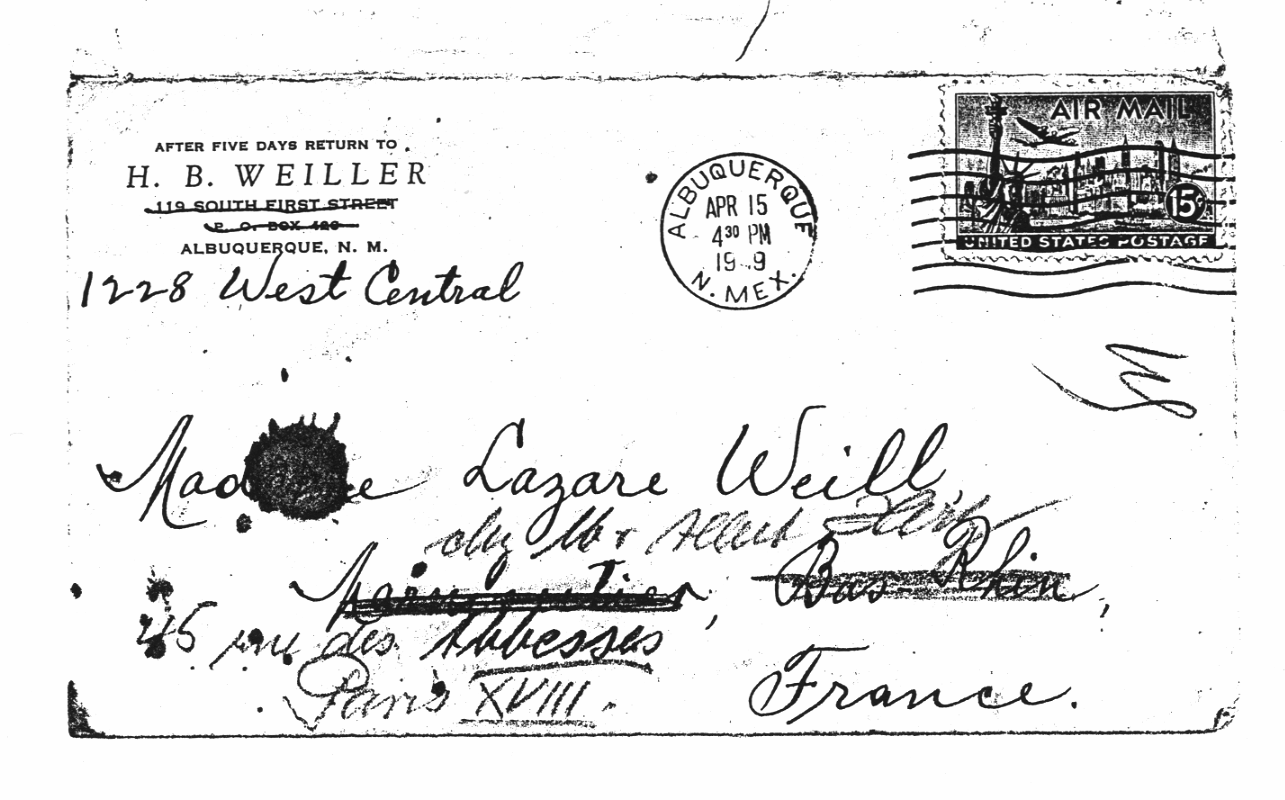 AFTER FIVE DAYS RETURN TO
H. B. WEILLER
119 SOUTH FIRST STREET
P. O. BOX 429
ALBUQUERQUE, N. M.
1228 West Central
ALBUQUERQUE
APR 15
4 30 PM
N. MEX.
AIR MAIL
15¢
UNITED STATES POSTAGE
Lazare Weill
chez Mr Albert
Bas Rhin,
45 rue des Abbesses
Paris XVIII.
France.